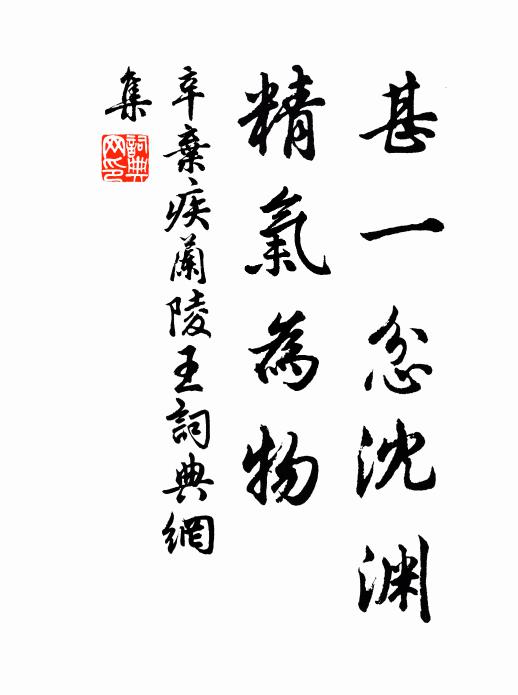 甚一忿沈渊
精氣為物
辛棄疾蘭陵王詞典網
集
詞典网印